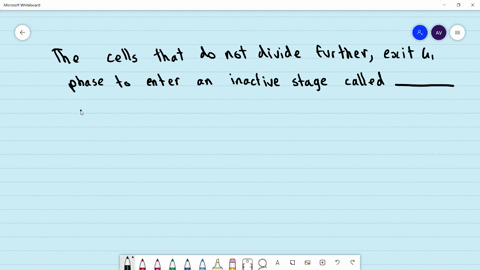 Microsoft Whiteboard
AV
The cells that do not divide further, exit G1
phase to enter an inactive stage called ______